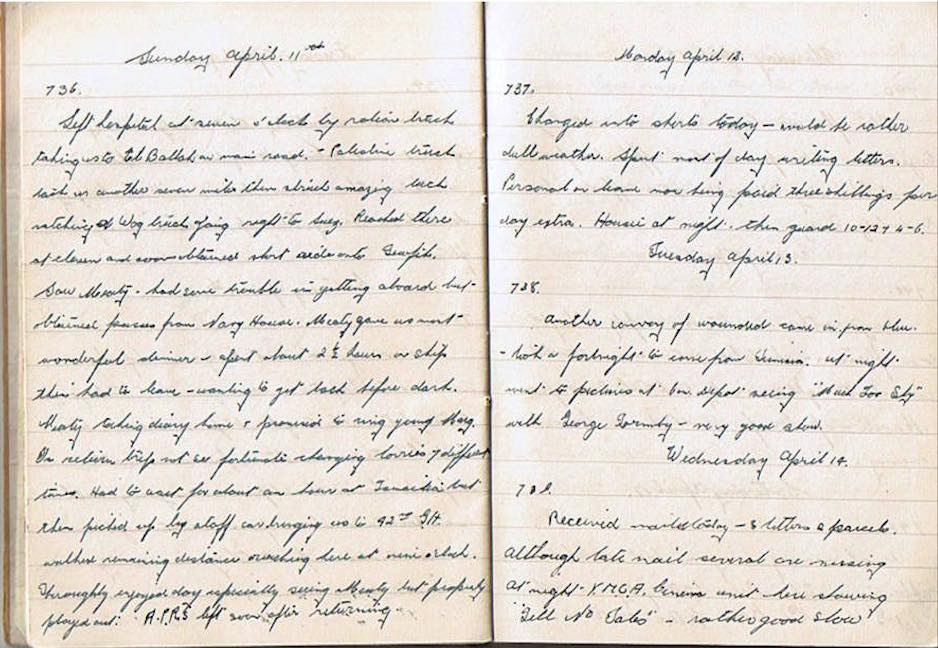 Sunday April. 11th
736.
Left hospital at seven o'clock by ration truck
taking us to El Ballah on main road. - Palestine truck
took us another seven miles then struck amazing luck
catching a Wog truck going right to Suez. Reached there
at eleven and soon obtained short ride onto
Saw Meaty - had some trouble in getting aboard but
obtained passes from Navy House. Meaty gave us most
wonderful dinner - spent about 2½ hours on ship
then had to leave - wanting to get back before dark.
Meaty taking diary home & promised to ring young
On return trip not so fortunate changing lorries 7 different
times. Had to wait for about an hour at but
then picked up by staff car bringing us to 92nd G.H.
walked remaining distance reaching here at nine o'clock.
Throughly enjoyed day especially seeing Meaty but properly
played out. A.P.R.S left soon after returning
Monday April 12.
737.
Changed into shorts today - would be rather
dull weather. Spent most of day writing letters.
Personal on leave now being paid three shillings per
day extra. Housie at night, then guard 10-12 & 4-6.
Tuesday April 13.
738.
Another convoy of wounded came in from blue.
- took a fortnight to come from Tunisia. At night
went to pictures at Depot seeing "Much Too Shy"
with George Formby - very good show.
Wednesday April 14.
739.
Received mail today - 8 letters & parcel.
Although late mail several are missing
At night Y.M.C.A. Cinema unit here showing
"Tell No Tales" - rather good show